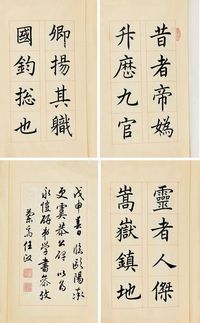 昔者帝媯
升歷九官
卿揚其職
國鈞揔也
靈者人傑
嵩嶽鎮地
戊申春日臨歐陽率
更虞恭公碑以為
永愷學書參攷
任政